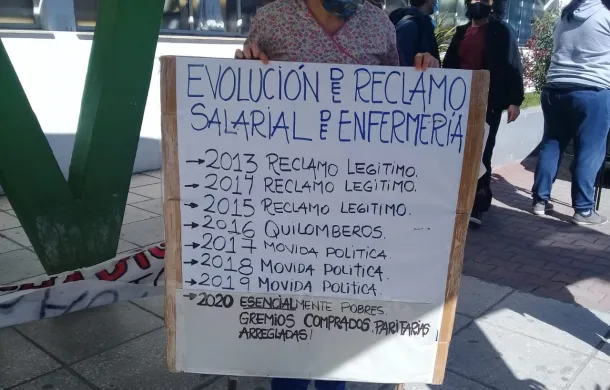 EVOLUCIÓN DE RECLAMO
SALARIAL DE ENFERMERÍA
→2013 RECLAMO LEGÍTIMO.
→2014 RECLAMO LEGÍTIMO.
→2015 RECLAMO LEGÍTIMO.
→2016 QUILOMBEROS.
→2017 MOVIDA POLÍTICA.
→2018 MOVIDA POLÍTICA.
→2019 MOVIDA POLÍTICA.
→2020 ESENCIALMENTE POBRES.
GREMIOS COMPRADOS, PARITARIAS
ARREGLADAS!